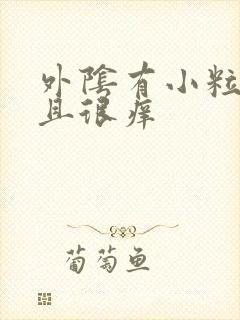 外陰有小粒
且很痒
葡萄鱼